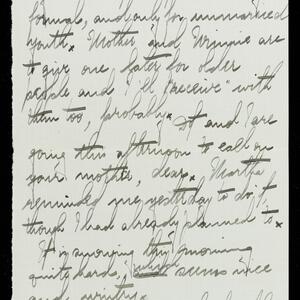 formal, and only for unmarried
youth. Mother and Winnie are
to give one, later for older
people and I'll "receive" with
them too, probably. and I are
going this afternoon to call on
your mother, dear. Martha
reminded me yesterday to do it
though I had already planned to.
It is snowing this morning
quite hard, which seems nice
and wintry.